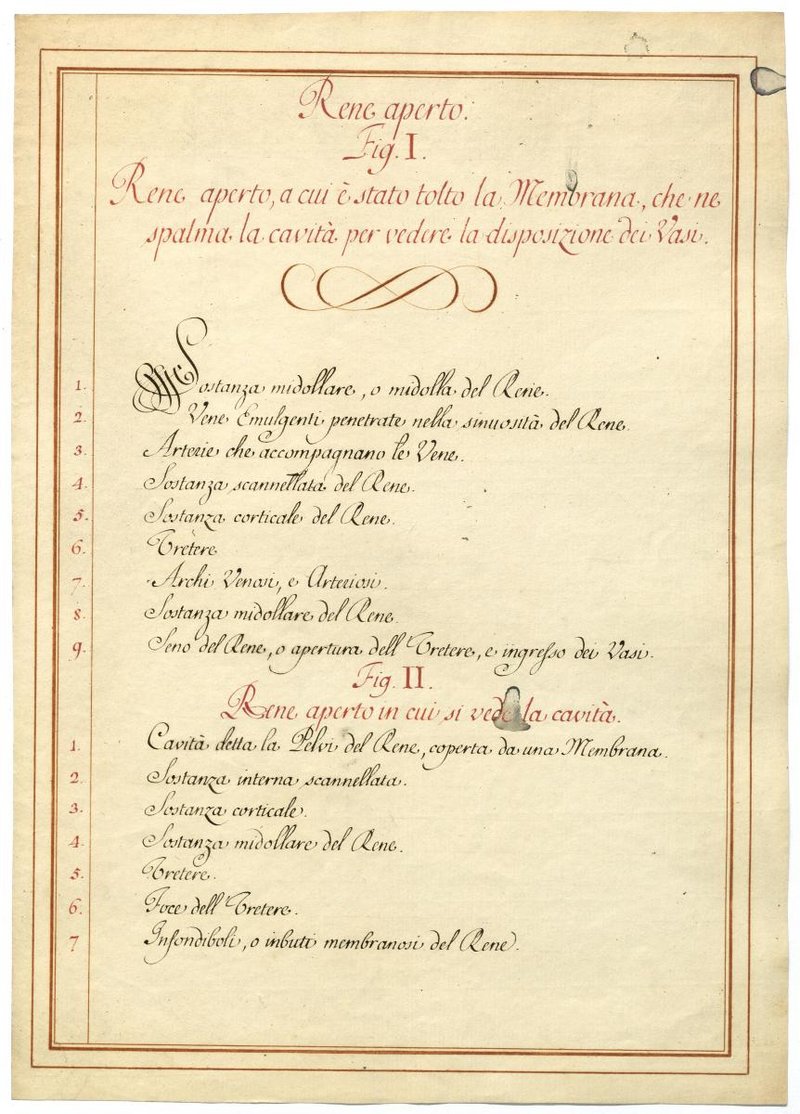 Rene aperto.
Fig. I.
Rene aperto, a cui è stato tolto la Membrana, che ne
spalma la cavità per vedere la disposizione dei Vasi.
1. Sostanza midollare, o midolla del Rene.
2. Vene Emulgenti penetrate nella sinuosità del Rene
3. Arterie che accompagnano le Vene.
4. Sostanza scannellata del Rene.
5. Sostanza corticale del Rene.
6. Vretere
7. Archi Venosi, e Arteriosi.
8. Sostanza midollare del Rene.
9. Seno del Rene, o apertura dell Vretere, e ingresso dei Vasi.
Fig. II.
Rene aperto in cui si vede la cavità.
1. Cavità detta la Pelvi del Rene, coperta da una Membrana.
2. Sostanza interna scannellata.
3. Sostanza corticale.
4. Sostanza midollare del Rene.
5. Vretere.
6. Foce dell Vretere.
7 Infondiboli, o inbuti membranosi del Rene.